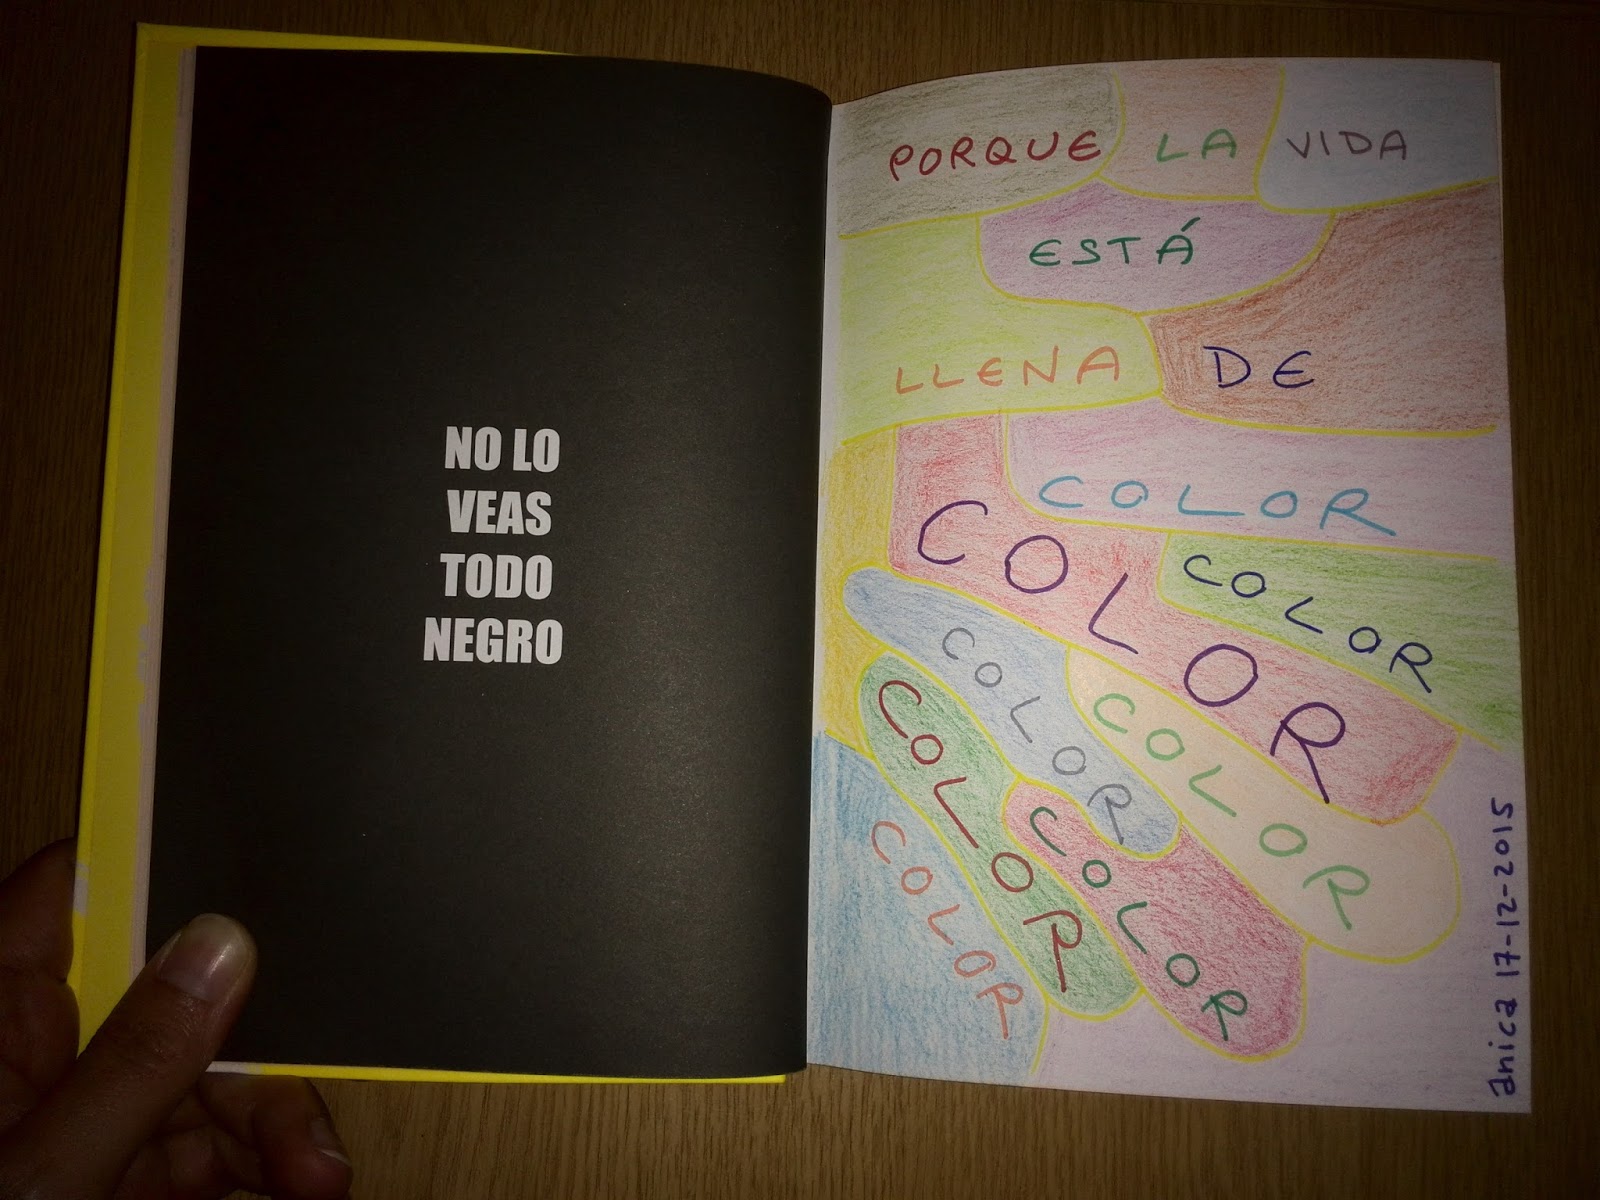 NO LO
VEAS
TODO
NEGRO
PORQUE LA VIDA
ESTÁ
LLENA DE
COLOR
COLOR
COLOR
COLOR
COLOR
COLOR
COLOR
COLOR
anica 17-12-2015